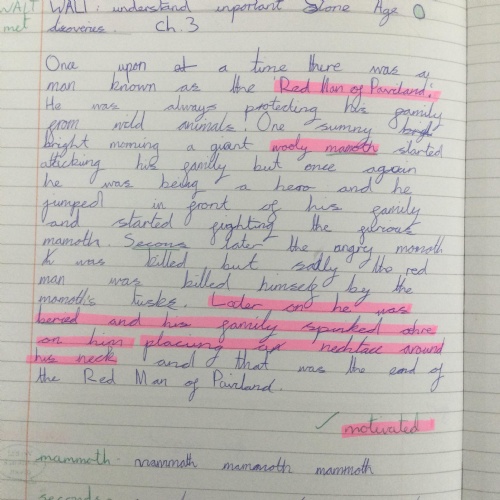 WALT WALT: understand inportant Stone Age
met discoveries. Ch.3
One upon at a time there was a
man known as the 'Red Man of Paviland'.
He was always protecting his family
from wild animals. One sunny brigh
bright morning a giant wooly mamoth started
atticking his family but once again
he was being a hero and he
jumped in front of his family
and started fighting the furious
mamoth. Secons later the angry mamoth
was killed but sadly the red
man was killed himself by the
mamoth's tusks. Later on he was
beried and his family spinked ohre
on him placing a necklace around
his neck and that was the end of
the Red Man of Paviland.
✓ motivated
mammoth mammoth mammoth mammoth
seconds